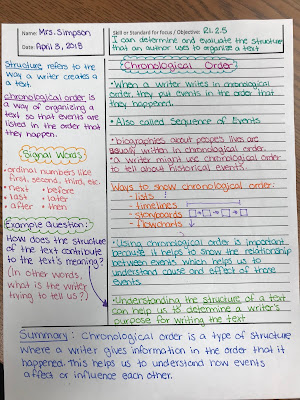 Name: Mrs. Simpson
Date: April 3, 2018
Skill or Standard for focus / Objective: RI.2.5
I can determine and evaluate the structure
that an author uses to organize a text
Structure refers to the
way a writer creates a
text.
chronological order is
a way of organizing a
text so that events are
listed in the order that
they happen.
Signal Words
• ordinal numbers like
first, second, third, etc.
• next • before
• last • later
• after • then
Example Question:
How does the structure
of the text contribute
to the text's meaning?
(In other words,
what is the writer
trying to tell us?)
Chronological Order
• When a writer writes in chronological
order, they put events in the order that
they happened.
• Also called Sequence of Events
* biographies about people's lives are
usually written in chronological order.
* a writer might use chronological order
to tell about historical events.
Ways to show chronological order:
- lists
- timelines
- storyboards
- flowcharts
• Using chronological order is important
because it helps to show the relationship
between events which helps us to
understand cause and effect of those
events
• Understanding the structure of a text
can help us to determine a writer's
purpose for writing the text
Summary: Chronological order is a type of structure
where a writer gives information in the order that it
happened. This helps us to understand how events
affect or influence each other.